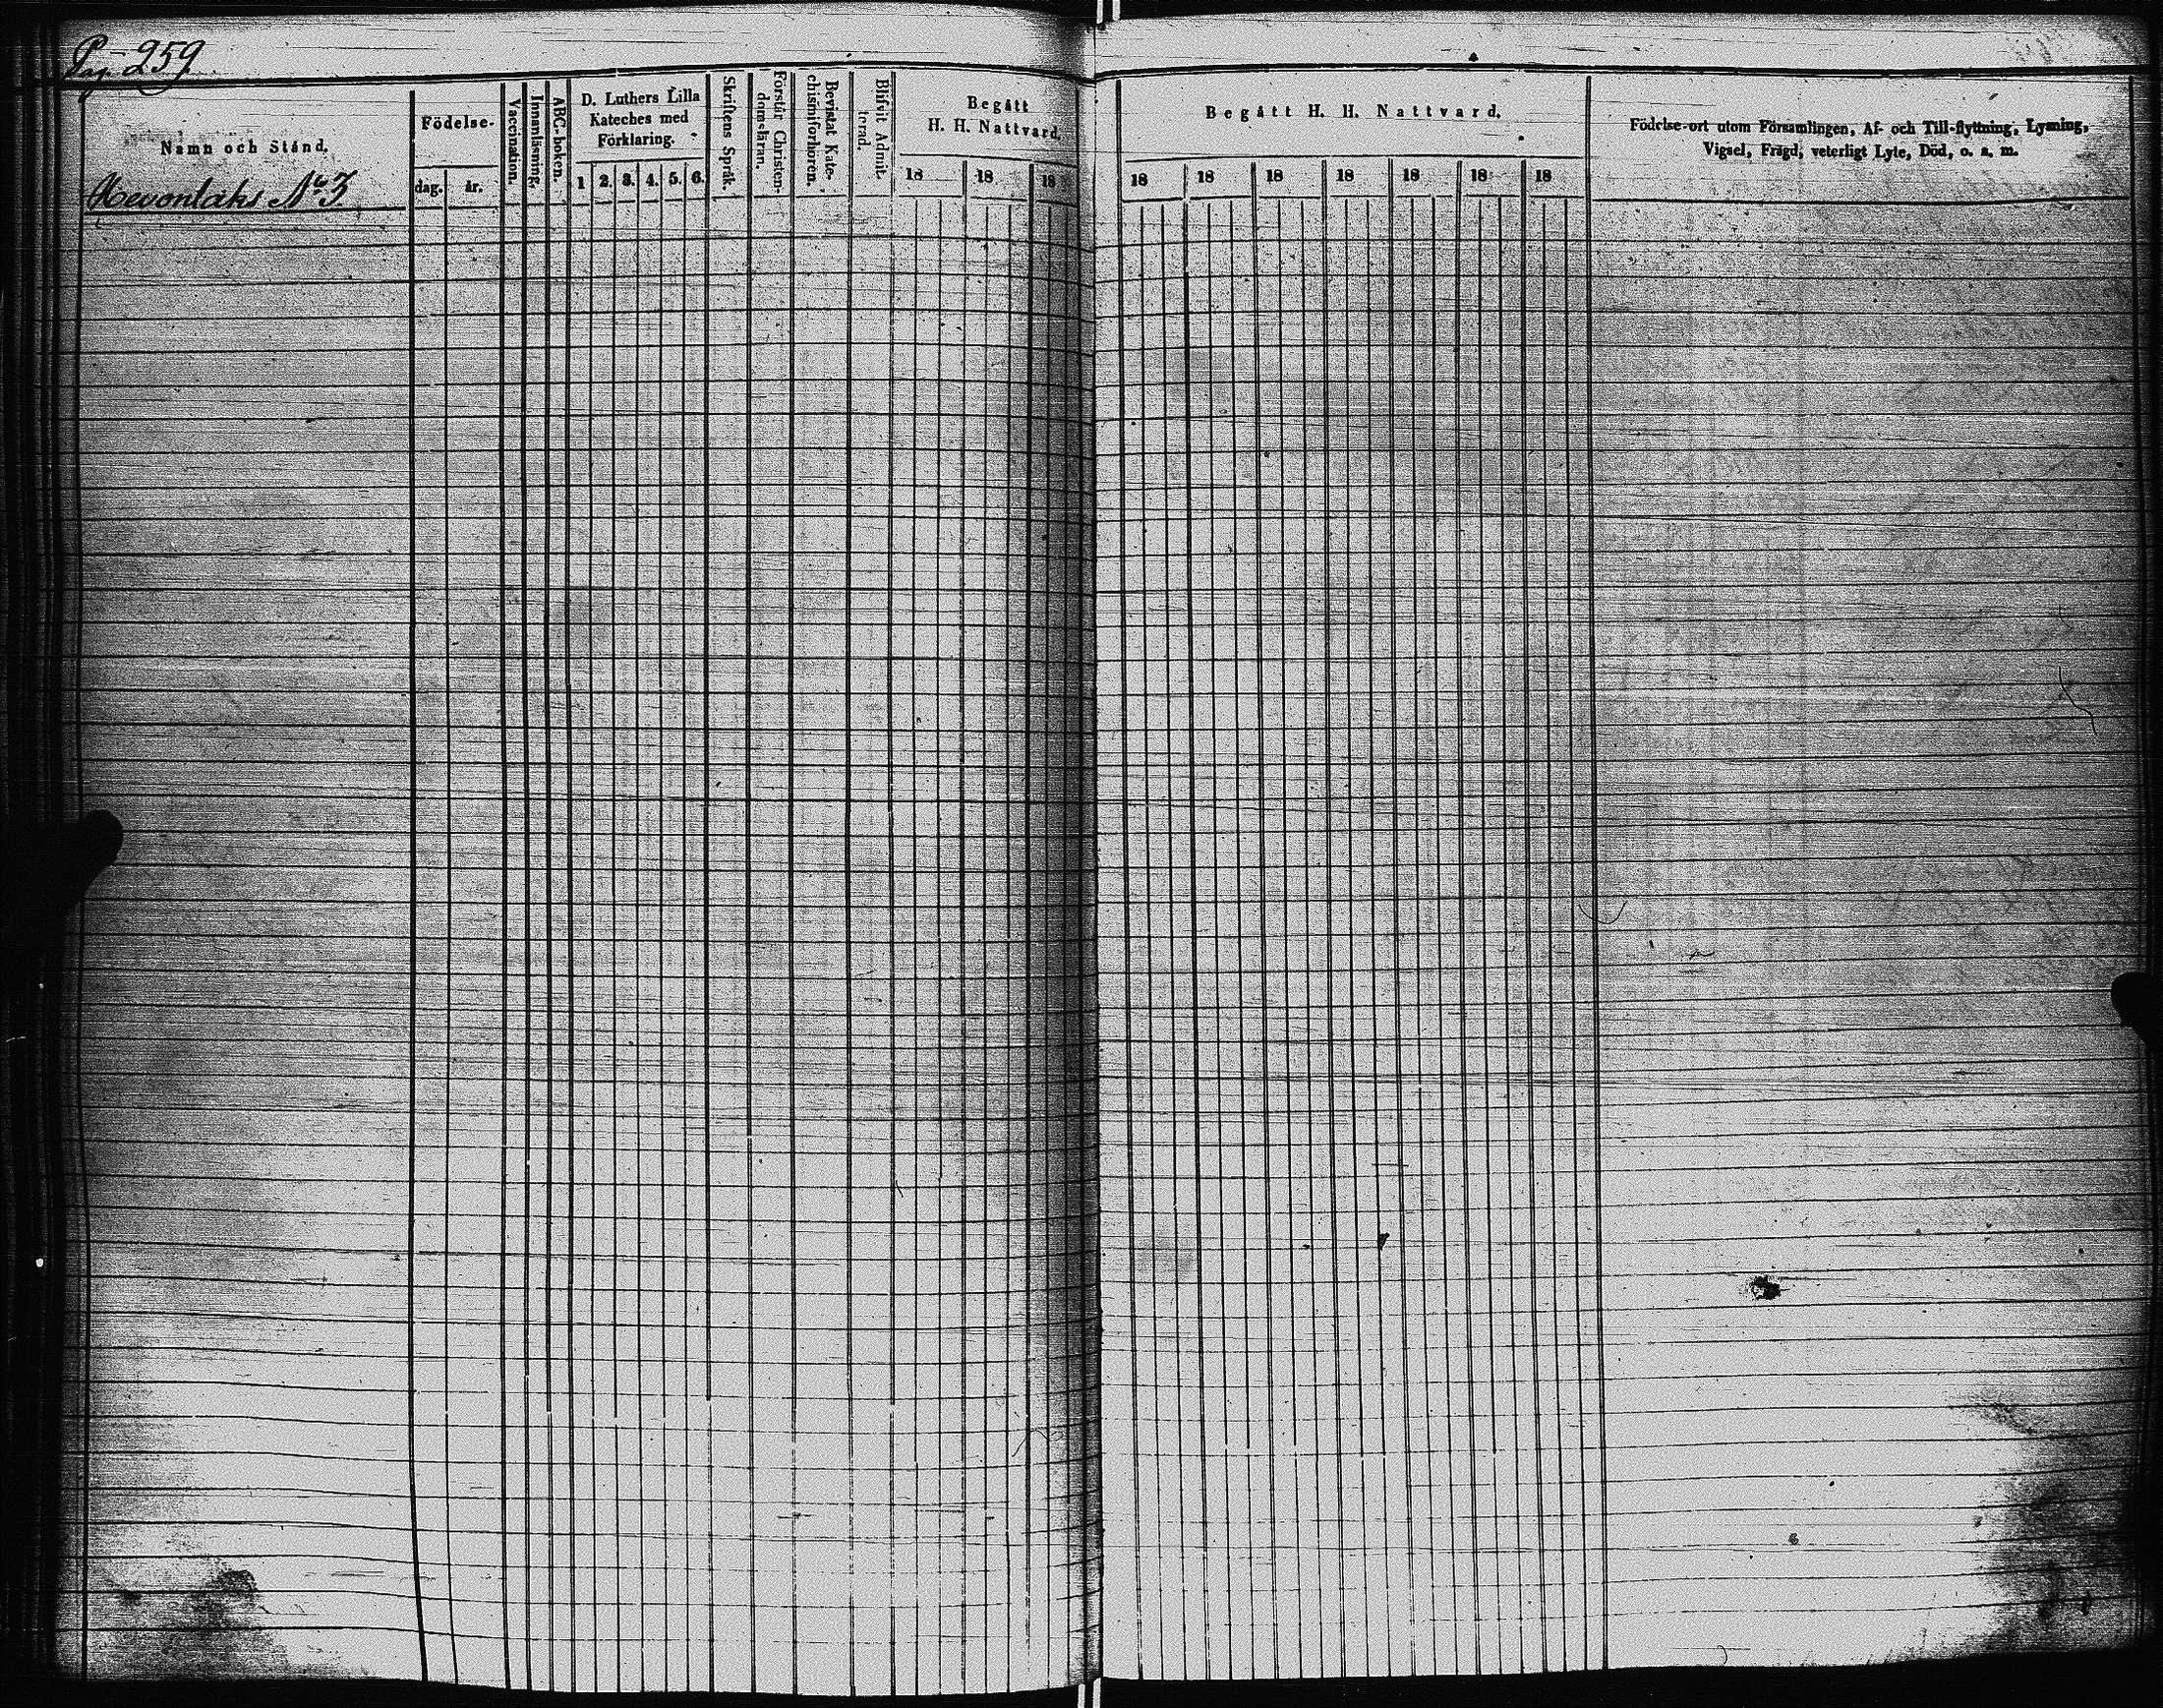 Pag. 259
Namn och Stånd.
Hevonlaks No 3
Födelse-
dag. år.
Vaccination.
Innanläsning.
ABC-boken.
D. Luthers Lilla
Kateches med
Förklaring.
1 2. 3. 4. 5. 6.
Skriftens Språk.
Förstår Christen-
domsläran.
Bevistat Kate-
chismiförhören.
Blifvit Admit-
terad.
Begått
H. H. Nattvard.
18 18 18
Begått H. H. Nattvard.
18 18 18 18 18 18 18
Födelse-ort utom Församlingen, Af- och Till-flyttning, Lysning,
Vigsel, Frägd, veterligt Lyte, Död, o. s. m.